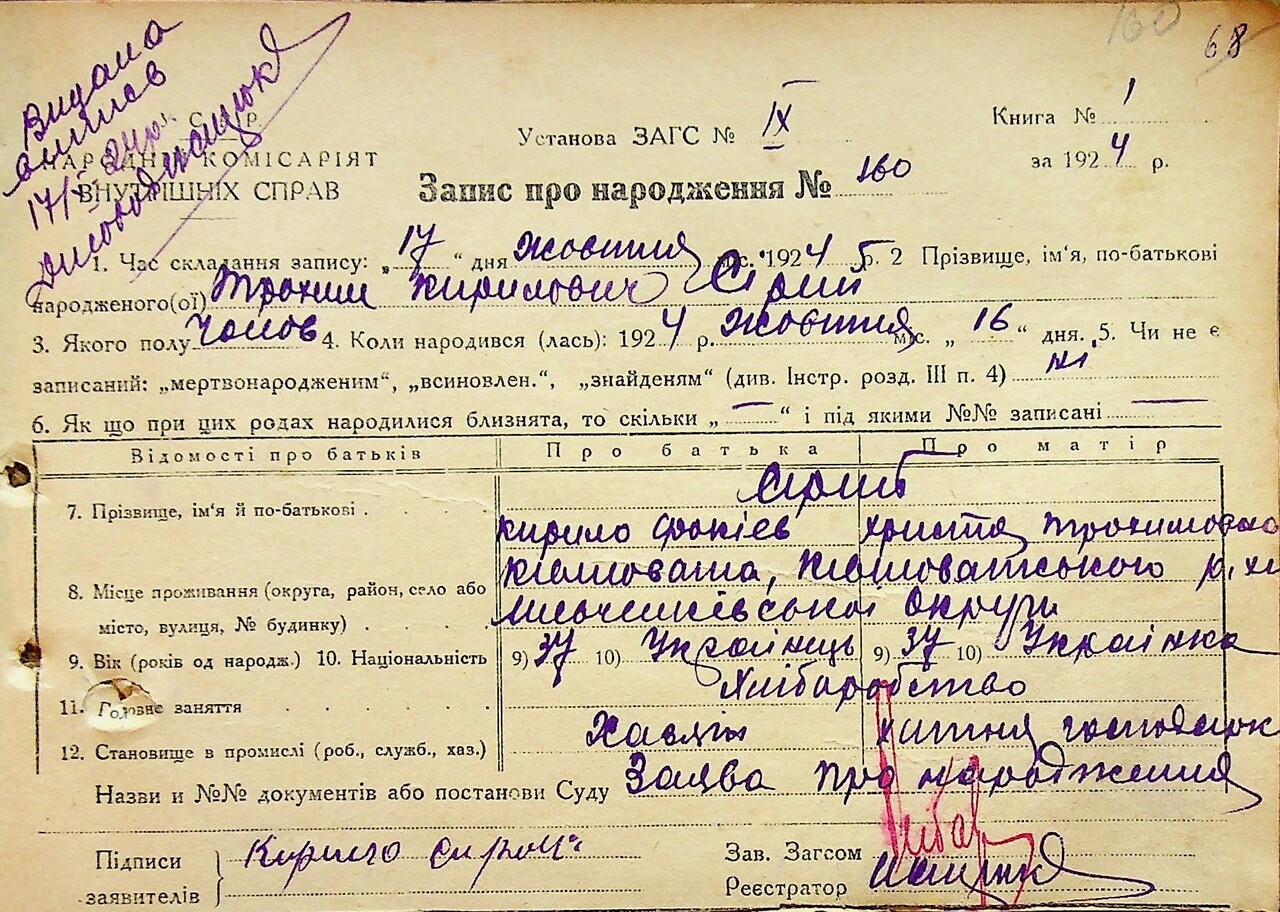 160
68
Видана
виписв
17/X 24р.
Діловод Нащук
С. Р. Р.
НАРОДНІЙ КОМІСАРІЯТ
ВНУТРІШНІХ СПРАВ
Установа ЗАГС № IX
Книга № 1
за 1924 р.
Запис про народження № 160
1. Час складання запису: „17“ дня жовтня міс. 1924 р. 2 Прізвище, ім'я, по-батькові
народженого(ої) Трохим Кирилович Сірий
3. Якого полу чолов 4. Коли народився (лась): 1924 р. жовтня міс. „16“ дня. 5. Чи не є
записаний: „мертвонародженим“, „всиновлен.“, „знайденям“ (див. Інстр. розд. III п. 4) ні
6. Як що при цих родах народилися близнята, то скільки „—“ і під якими №№ записані —
Відомості про батьків Про батька Про матір
Сірий
7. Прізвище, ім'я й по-батькові
Кирило Фокіев Христя Трохимовна
8. Місце проживання (округа, район, село або
місто, вулиця, № будинку)
Ківшовата, Ківшоватського р.
округи
9. Вік (років од народж.) 10. Національність 9) 37 10) Українець 9) 37 10) Українка
11. Головне заняття Хліборобство
12. Становище в промислі (роб., служб., хаз.) Хазяїн хатня
Назви и №№ документів або постанови Суду Заява про народження
Підписи
заявителів
Кирило Сирой
Зав. Загсом
Реєстратор